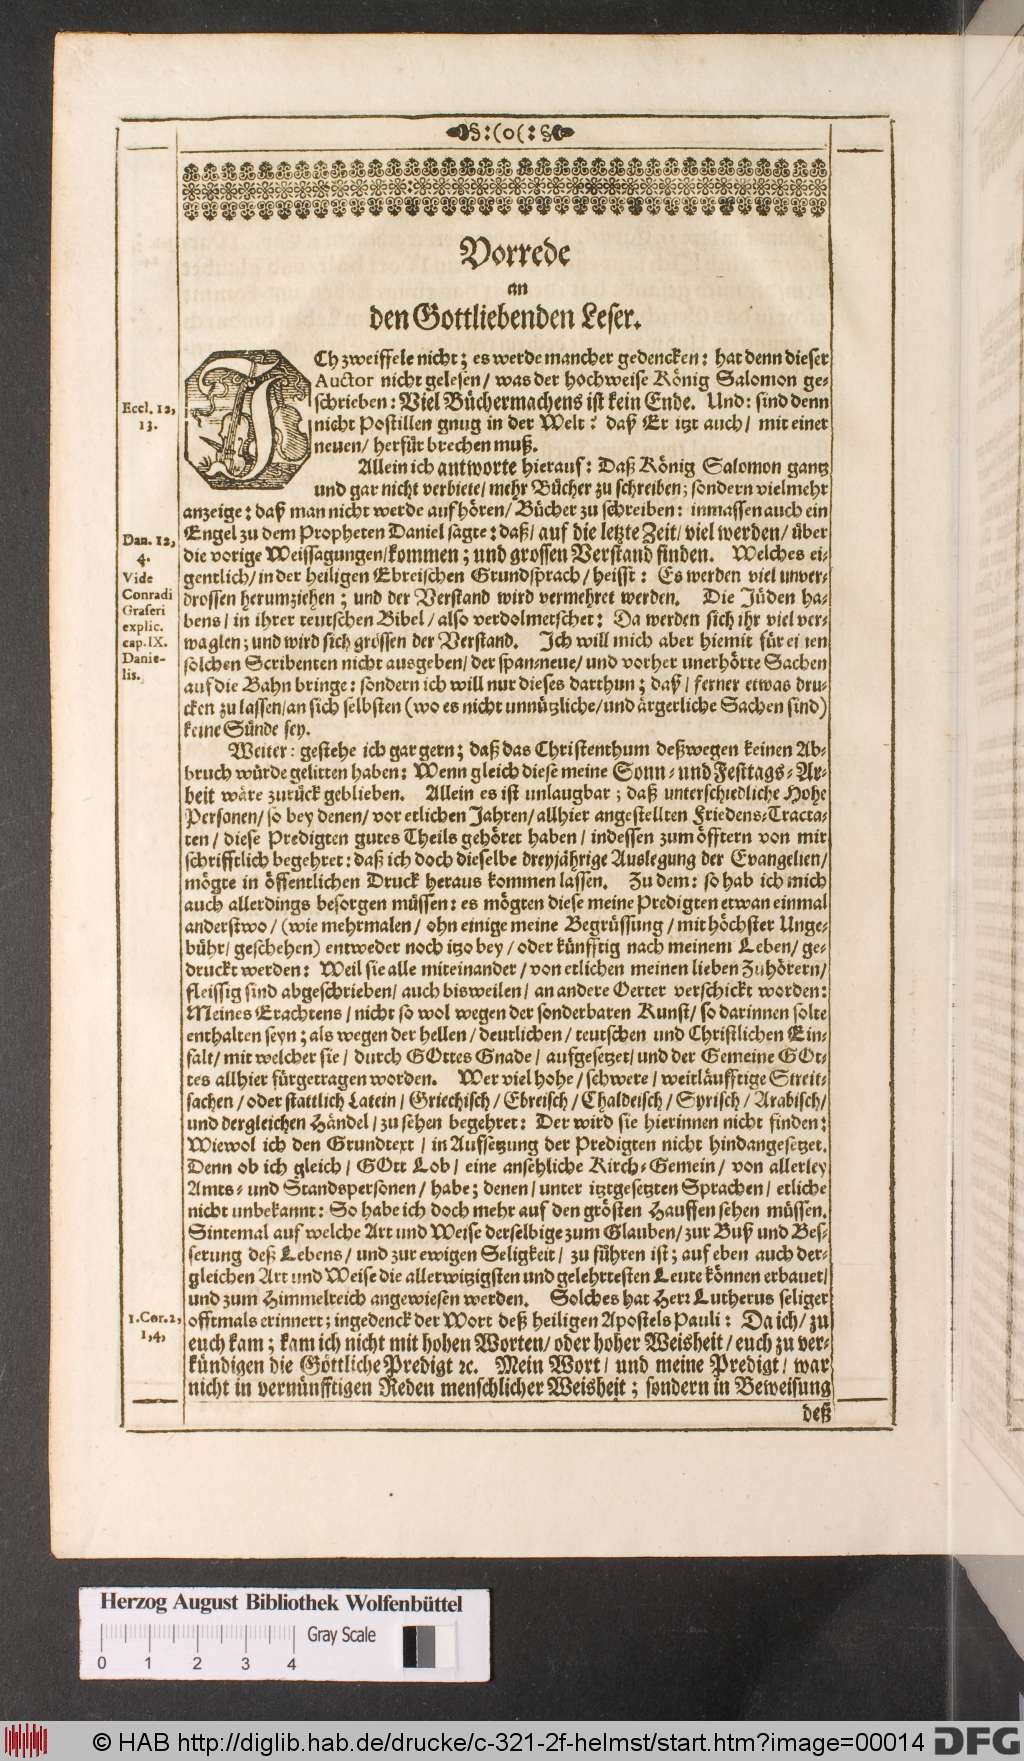 §:(o(:§
Vorrede
an
den Gottliebenden Leser.
ICh zweiffele nicht; es werde mancher gedencken: hat denn dieser
Auctor nicht gelesen/ was der hochweise König Salomon ge-
schrieben: Viel Büchermachens ist kein Ende. Und: sind denn
nicht Postillen gnug in der Welt? daß Er itzt auch/ mit einer
neuen/ herfür brechen muß.
Eccl. 12,
13.
Allein ich antworte hierauf: Daß König Salomon gantz
und gar nicht verbiete/ mehr Bücher zu schreiben; sondern vielmehr
anzeige: daß man nicht werde aufhören/ Bücher zu schreiben: inmassen auch ein
Engel zu dem Propheten Daniel sagte: daß/ auf die letzte Zeit/ viel werden/ über
die vorige Weissagungen/ kommen; und grossen Verstand finden. Welches ei-
gentlich/ in der heiligen Ebreischen Grundsprach/ heisst: Es werden viel unver-
drossen herumziehen; und der Verstand wird vermehret werden. Die Jüden ha-
bens/ in ihrer teutschen Bibel/ also verdolmetschet: Da werden sich ihr viel ver-
waglen; und wird sich grössen der Verstand. Ich will mich aber hiemit für einen
solchen Scribenten nicht ausgeben/ der span-neue/ und vorher unerhörte Sachen
auf die Bahn bringe: sondern ich will nur dieses darthun; daß/ ferner etwas dru-
cken zu lassen/ an sich selbsten (wo es nicht unnützliche/ und ärgerliche Sachen sind)
keine Sünde sey.
Dan. 12,
4.
Vide
Conradi
Graseri
explic.
cap. IX.
Danie-
lis.
Weiter: gestehe ich gar gern; daß das Christenthum deßwegen keinen Ab-
bruch würde gelitten haben: Wenn gleich diese meine Sonn- und Festtags-Ar-
beit wäre zurück geblieben. Allein es ist unlaugbar; daß unterschiedliche Hohe
Personen/ so bey denen/ vor etlichen Jahren/ allhier angestellten Friedens-Tracta-
ten/ diese Predigten gutes Theils gehöret haben/ indessen zum öfftern von mir
schrifftlich begehret: daß ich doch dieselbe dreyjährige Auslegung der Evangelien/
mögte in öffentlichen Druck heraus kommen lassen. Zu dem: so hab ich mich
auch allerdings besorgen müssen: es mögten diese meine Predigten etwan einmal
anderstwo/ (wie mehrmalen/ ohn einige meine Begrüssung/ mit höchster Unge-
bühr/ geschehen) entweder noch itzo bey/ oder künfftig nach meinem Leben/ ge-
druckt werden: Weil sie alle miteinander/ von etlichen meinen lieben Zuhörern/
fleissig sind abgeschrieben/ auch bisweilen/ an andere Oerter verschickt worden:
Meines Erachtens/ nicht so wol wegen der sonderbaren Kunst/ so darinnen solte
enthalten seyn; als wegen der hellen/ deutlichen/ teutschen und Christlichen Ein-
falt/ mit welcher sie/ durch GOttes Gnade/ aufgesetzet/ und der Gemeine GOt-
tes allhier fürgetragen worden. Wer viel hohe/ schwere/ weitläufftige Streit-
sachen/ oder stattlich Latein/ Griechisch/ Ebreisch/ Chaldeisch/ Syrisch/ Arabisch/
und dergleichen Händel/ zu sehen begehret: Der wird sie hierinnen nicht finden:
Wiewol ich den Grundtext/ in Aufsetzung der Predigten nicht hindangesetzet.
Denn ob ich gleich/ GOtt Lob/ eine ansehliche Kirch-Gemein/ von allerley
Amts- und Standspersonen/ habe; denen/ unter itztgesetzten Sprachen/ etliche
nicht unbekannt: So habe ich doch mehr auf den grösten Hauffen sehen müssen.
Sintemal auf welche Art und Weise derselbige zum Glauben/ zur Buß und Bes-
serung deß Lebens/ und zur ewigen Seligkeit/ zu führen ist; auf eben auch der-
gleichen Art und Weise die allerwitzigsten und gelehrtesten Leute können erbauet/
und zum Himmelreich angewiesen werden. Solches hat Herr Lutherus seliger
offtmals erinnert; ingedenck der Wort deß heiligen Apostels Pauli: Da ich/ zu
euch kam; kam ich nicht mit hohen Worten/ oder hoher Weisheit/ euch zu ver-
kündigen die Göttliche Predigt ꝛc. Mein Wort/ und meine Predigt/ war
nicht in vernünfftigen Reden menschlicher Weisheit; sondern in Beweisung
1. Cor. 2,
1, 4,
deß
Herzog August Bibliothek Wolfenbüttel
Gray Scale
0 1 2 3 4
© HAB http://diglib.hab.de/drucke/c-321-2f-helmst/start.htm?image=00014
DFG